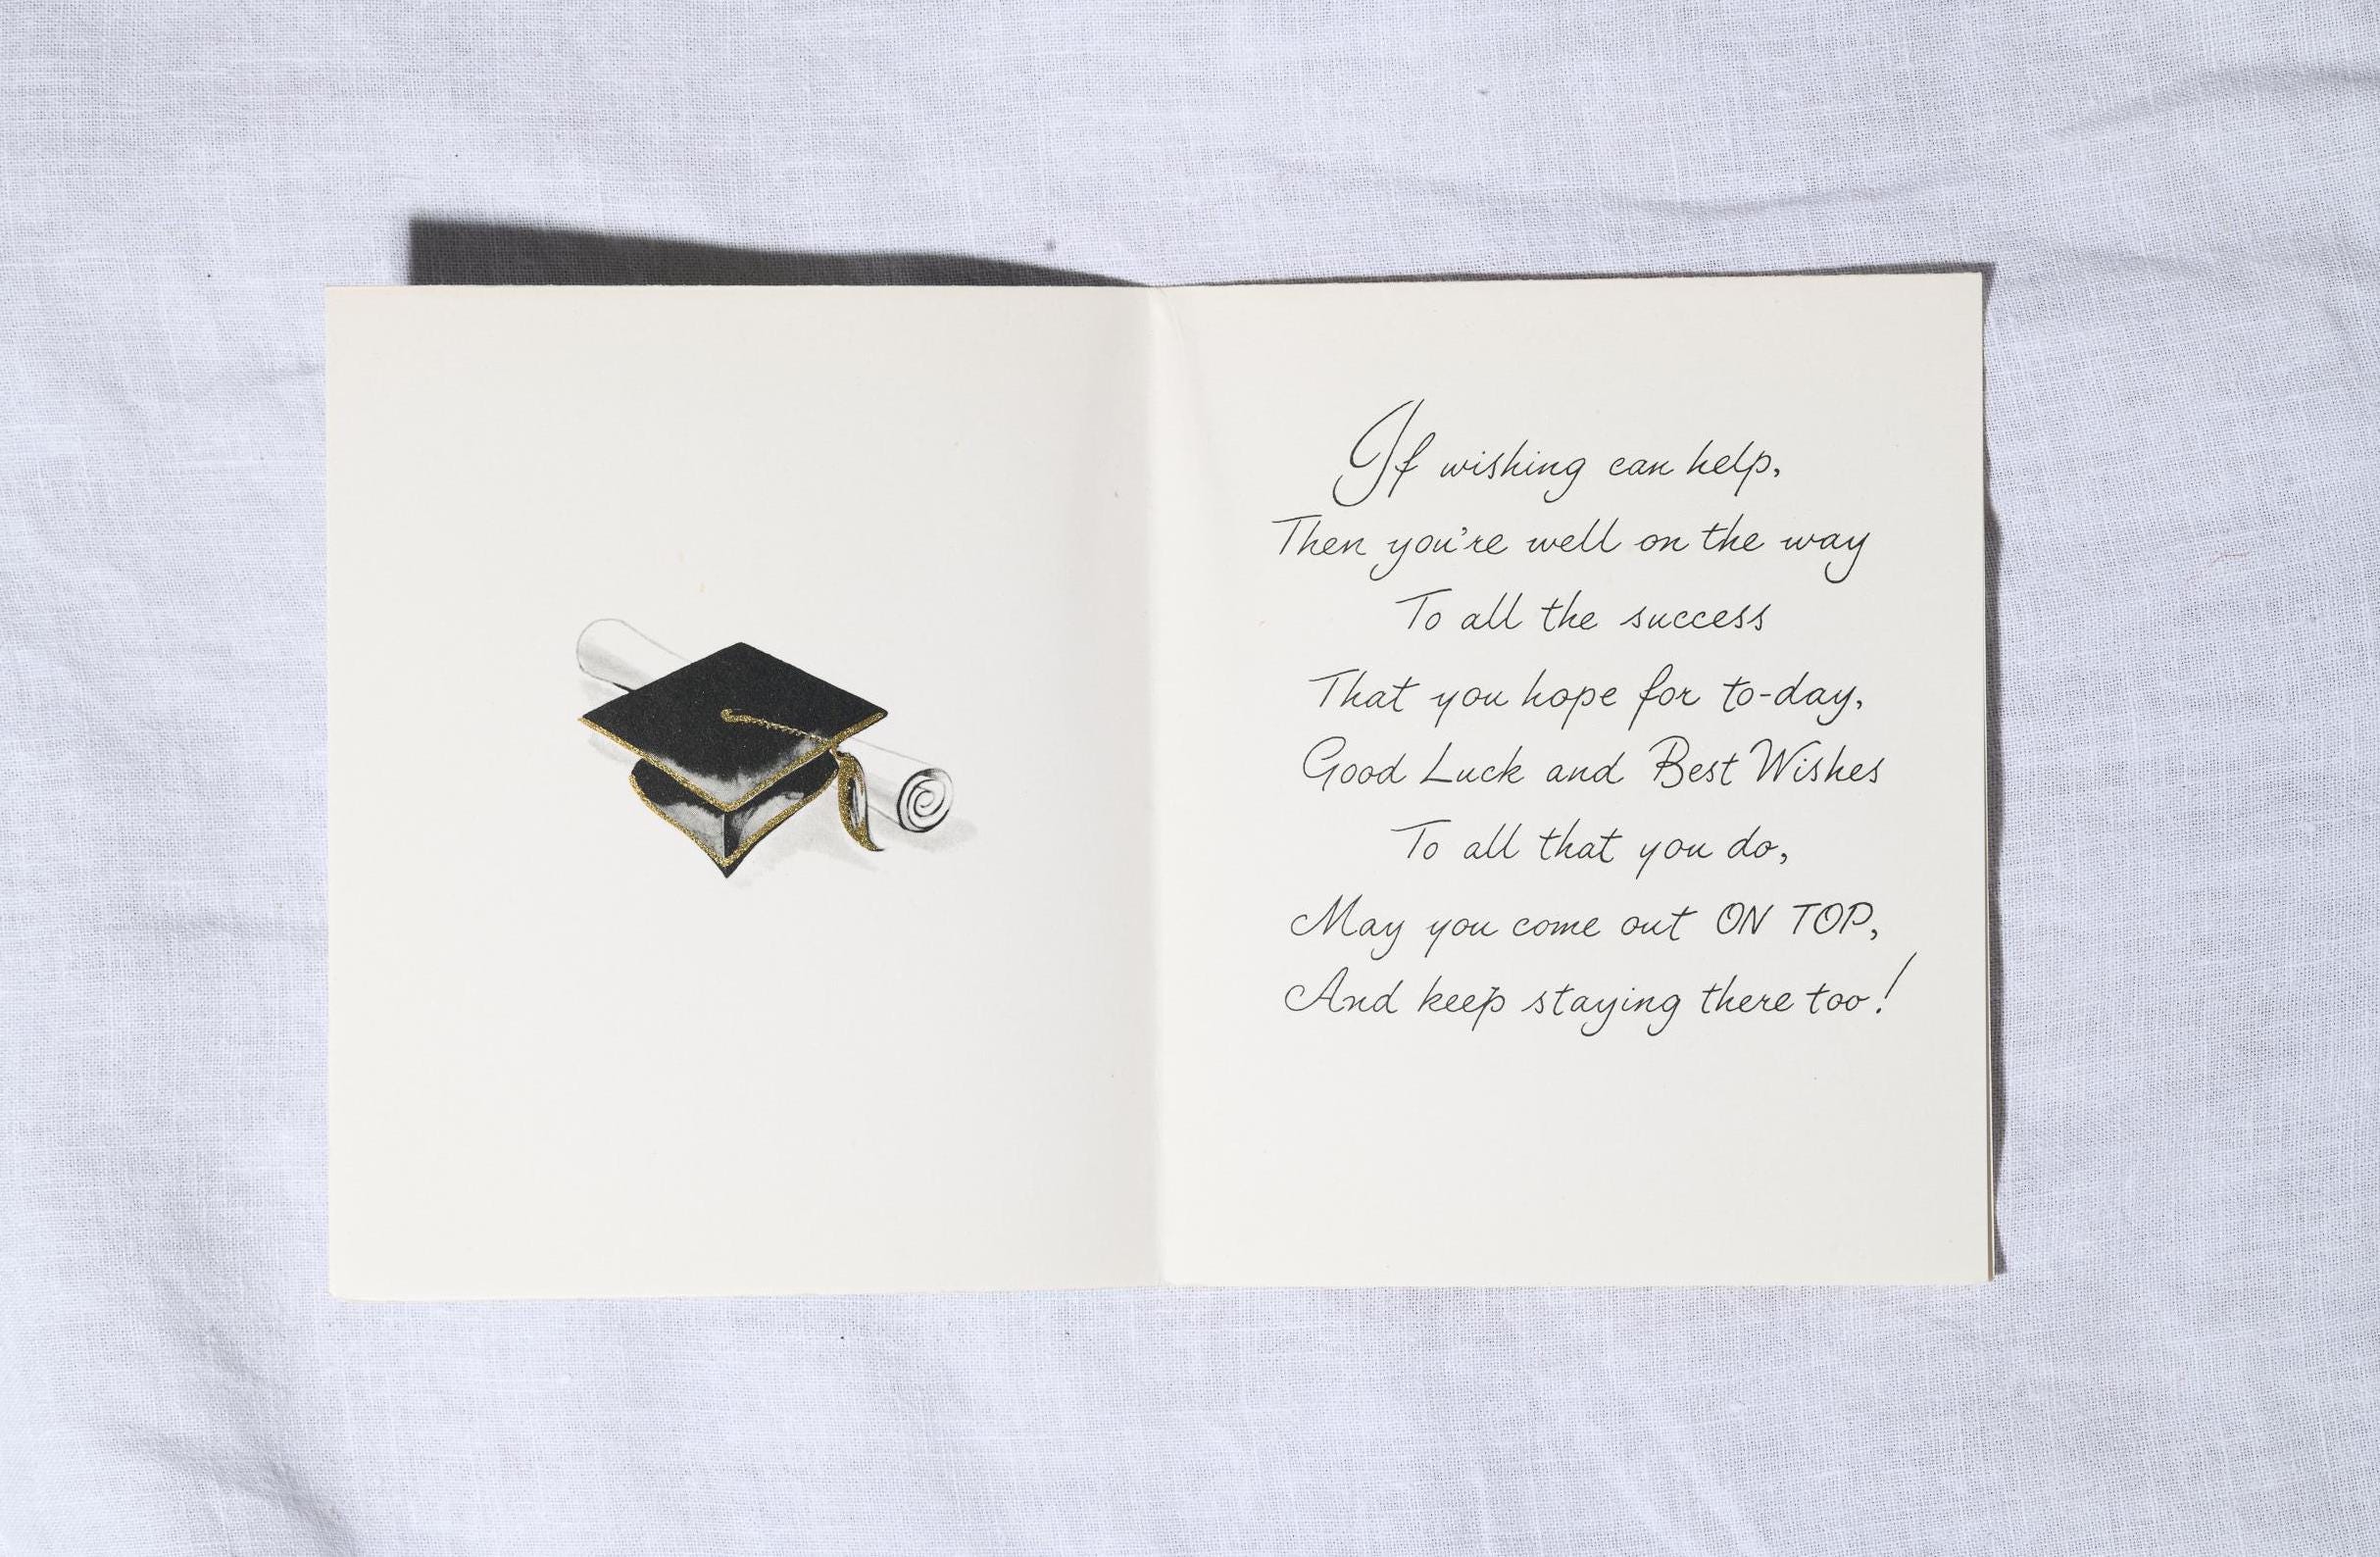 If wishing can help,
Then you're well on the way
To all the success
That you hope for to-day,
Good Luck and Best Wishes
To all that you do,
May you come out ON TOP,
And keep staying there too!